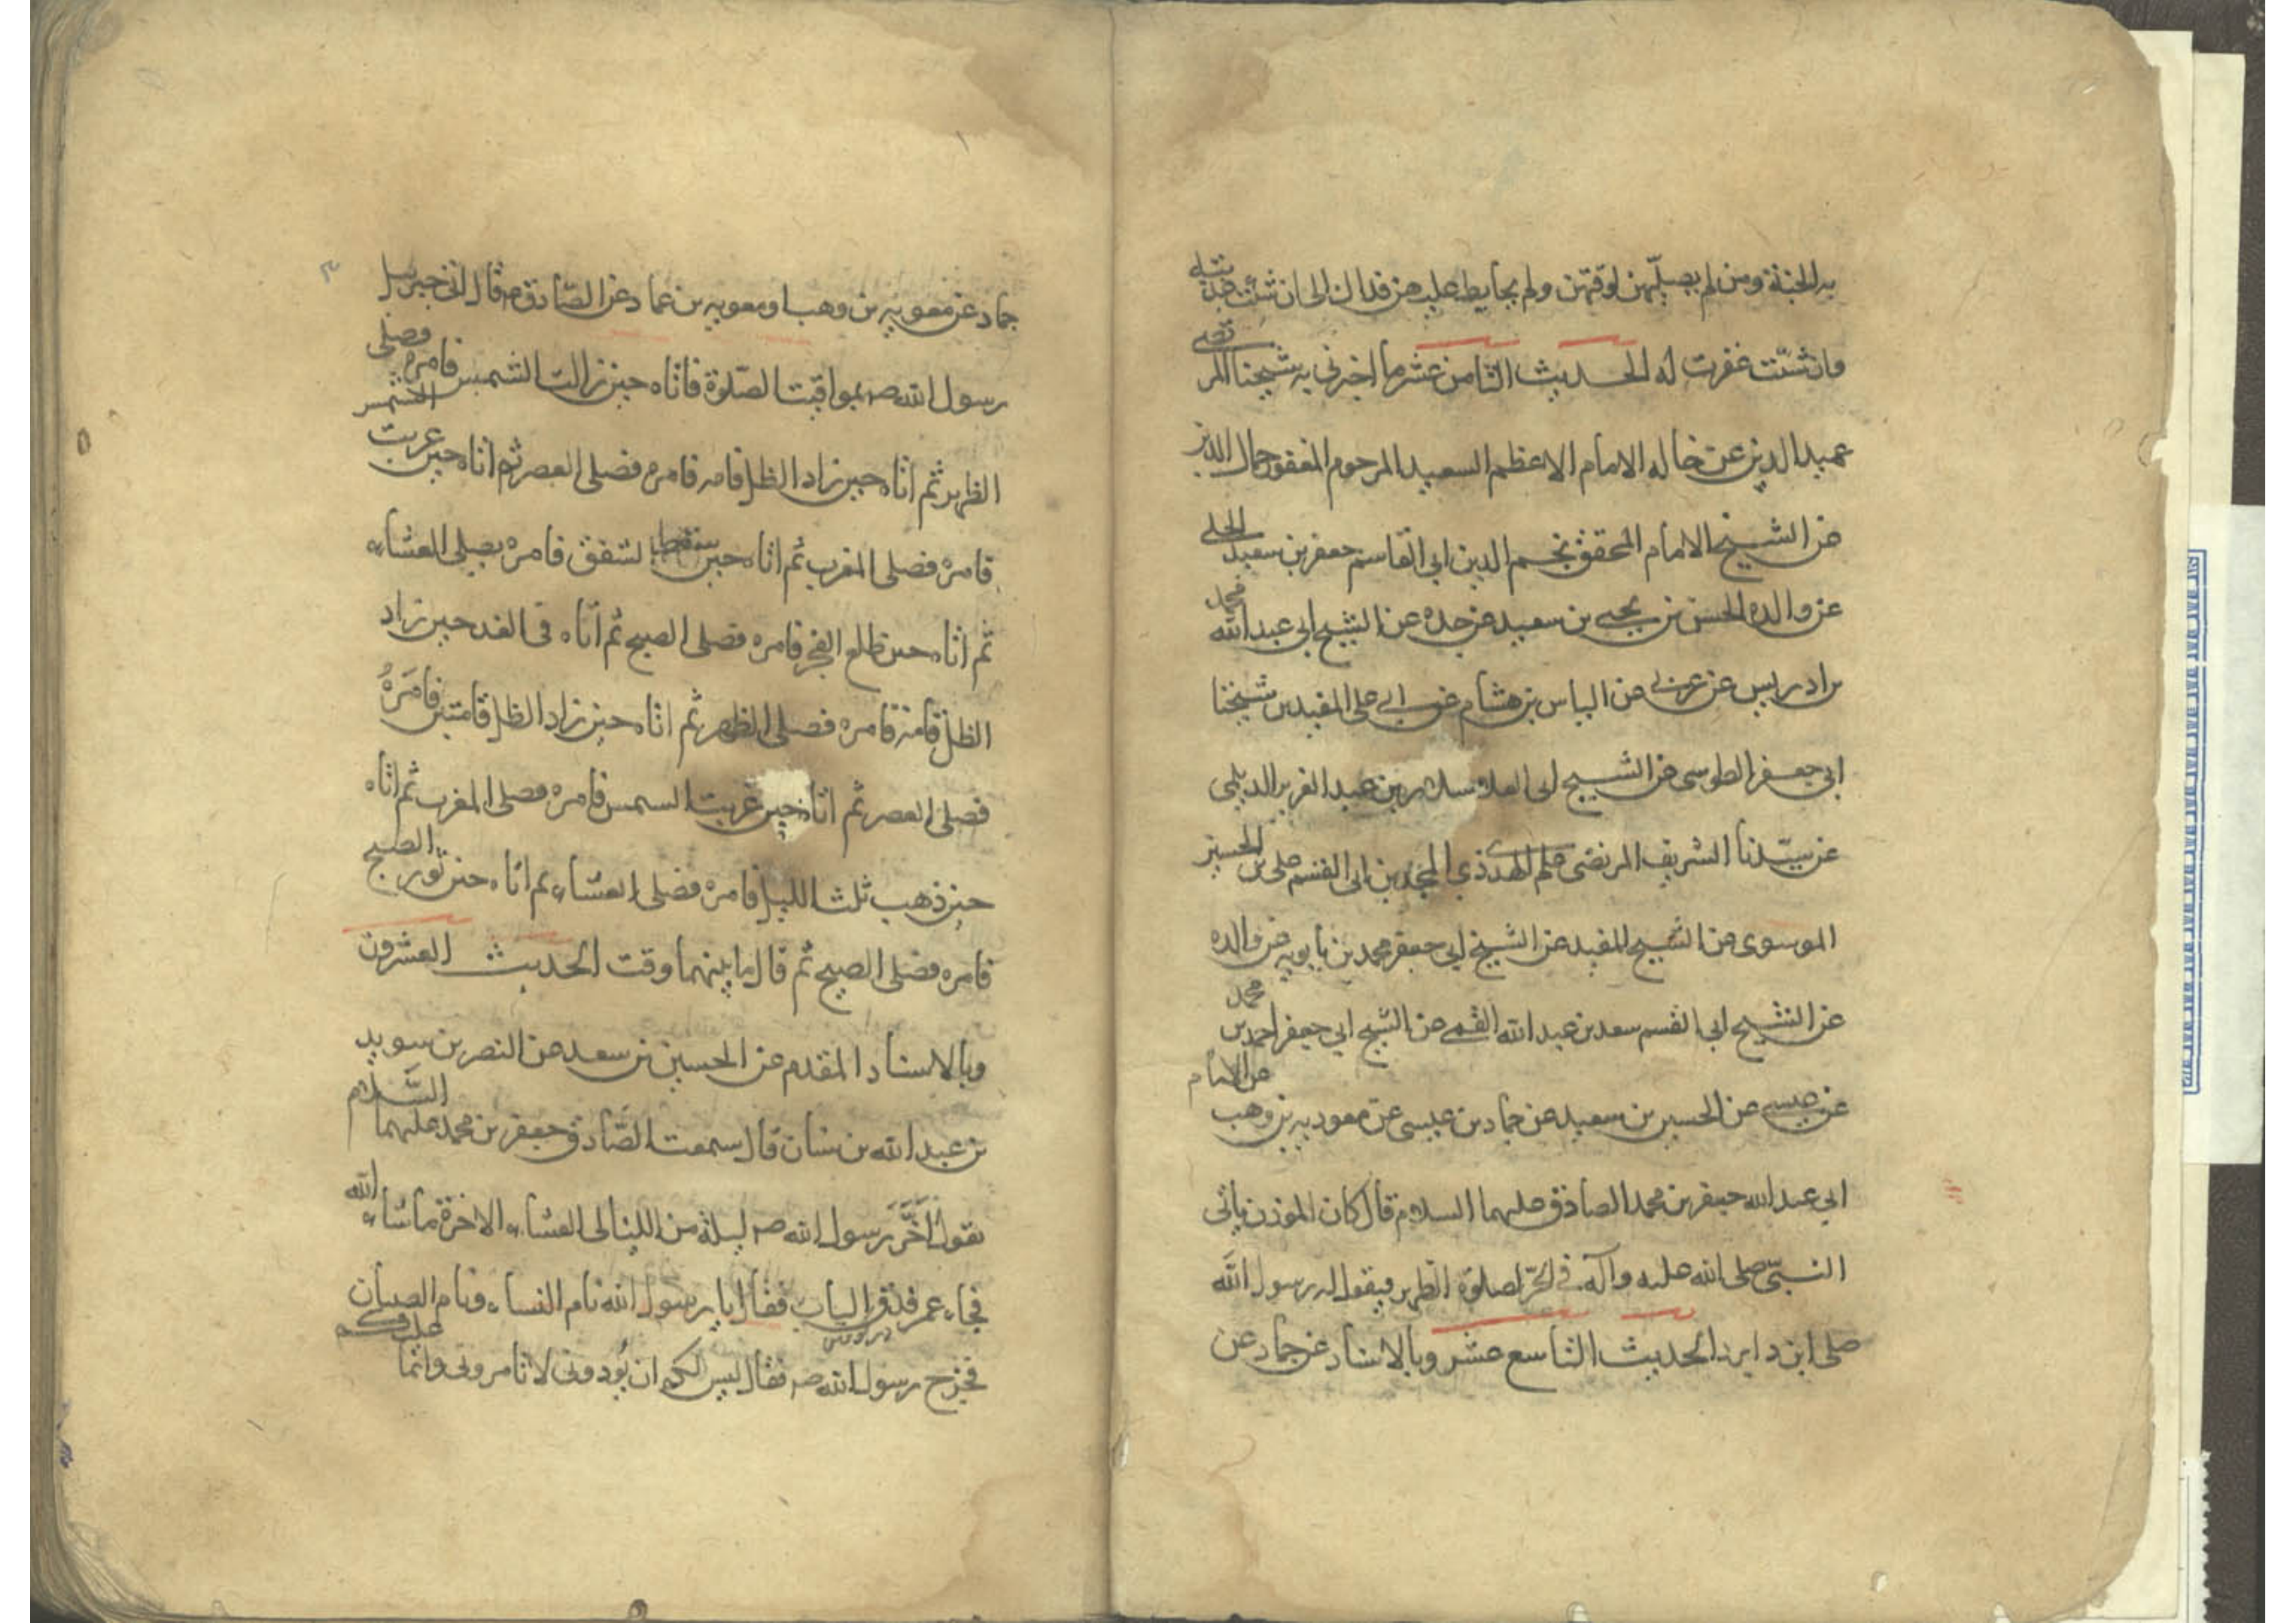 به الجنة ومن لم يصلهن لوقتهن ولم يحافظ عليهن فذلك الى ان شئت عذبته
وان شئت غفرت له الحديث الثامن عشر ما اخبرني به شيخنا المرتضى
عميد الدين عن خاله الامام الاعظم السعيد المرحوم المغفور جمال الدين
عن الشيخ الامام المحقق نجم الدين ابى القاسم جعفر بن سعيد الحلى
عن والده الحسن بن يحيى بن سعيد عن جده عن الشيخ ابي عبد الله محمد
بن ادريس عن عربى عن الياس بن هشام عن ابى على المفيد بن شيخنا
ابي جعفر الطوسى عن الشيخ ابى العلا سلار بن عبد العزيز الديلمى
عن سيدنا الشريف المرتضى علم الهدى ذي المجدين ابى القسم على بن الحسين
الموسوى عن الشيخ المفيد عن الشيخ ابي جعفر محمد بن بابويه عن والده
عن الشيخ ابى القسم سعد بن عبد الله القمى عن الشيخ ابي جعفر احمد بن محمد
بن عيسى عن الحسين بن سعيد عن حماد بن عيسى عن معويه بن وهب عن الامام
ابي عبد الله جعفر بن محمد الصادق عليهما السلام قال كان الموذن ياتى
النبى صلى الله عليه وآله في الحر لصلوة الظهر فيقول له رسول الله
صلى ابرد ابرد الحديث التاسع عشر وبالاسناد عن حماد عن
حماد عن معويه بن وهب او معويه بن عمار عن الصادق ع قال اتى جبرئيل
رسول الله ص بمواقيت الصلوة فاتاه حين زالت الشمس فامره فصلى
الظهر ثم اتاه حين زاد الظل قامه فامره فصلى العصر ثم اتاه حين غربت الشمس
فامره فصلى المغرب ثم اتاه حين سقط الشفق فامره يصلى العشاء
ثم اتاه حين طلع الفجر فامره فصلى الصبح ثم اتاه فى الغد حين زاد
الظل قامة فامره فصلى الظهر ثم اتاه حين زاد الظل قامتين فامره
فصلى العصر ثم اتاه حين غربت الشمس فامره فصلى المغرب ثم اتاه
حين ذهب ثلث الليل فامره فصلى العشاء ثم اتاه حين نور الصبح
فامره فصلى الصبح ثم قال ما بينهما وقت الحديث العشرون
وبالاسناد المقدم عن الحسين بن سعيد عن النضر بن سويد
عن عبد الله بن سنان قال سمعت الصادق جعفر بن محمد عليهما السلام
يقول اخر رسول الله ص ليلة من الليالى العشاء الاخرة ما شاء الله
فجاء عمر فدق الباب فقال يا رسول الله نام النساء ونام الصبيان
فخرج رسول الله ص فقال ليس لكم ان تؤذونى لا تامرونى وانما عليكم